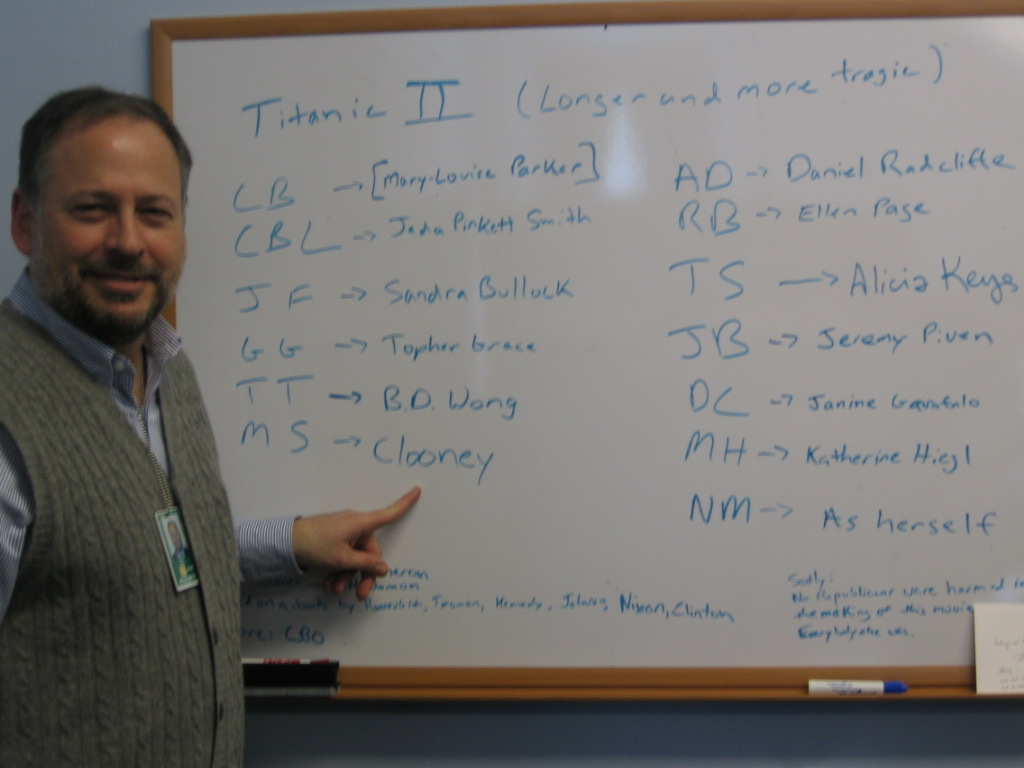 Titanic II (Longer and more tragic)
CB -> [Mary-Louise Parker]
CBL -> Jada Pinkett Smith
JF -> Sandra Bullock
GG -> Topher Grace
TT -> B.D. Wong
MS -> Clooney
AD -> Daniel Radcliffe
RB -> Ellen Page
TS -> Alicia Keys
JB -> Jeremy Piven
DC -> Janine Garafalo
MH -> Katherine Hiegl
NM -> As herself
by Roosevelt, Truman, Kennedy, Johnson, Nixon, Clinton
CBO
Sadly:
No Republicans were harmed
the making of this movie
Everybody else was.